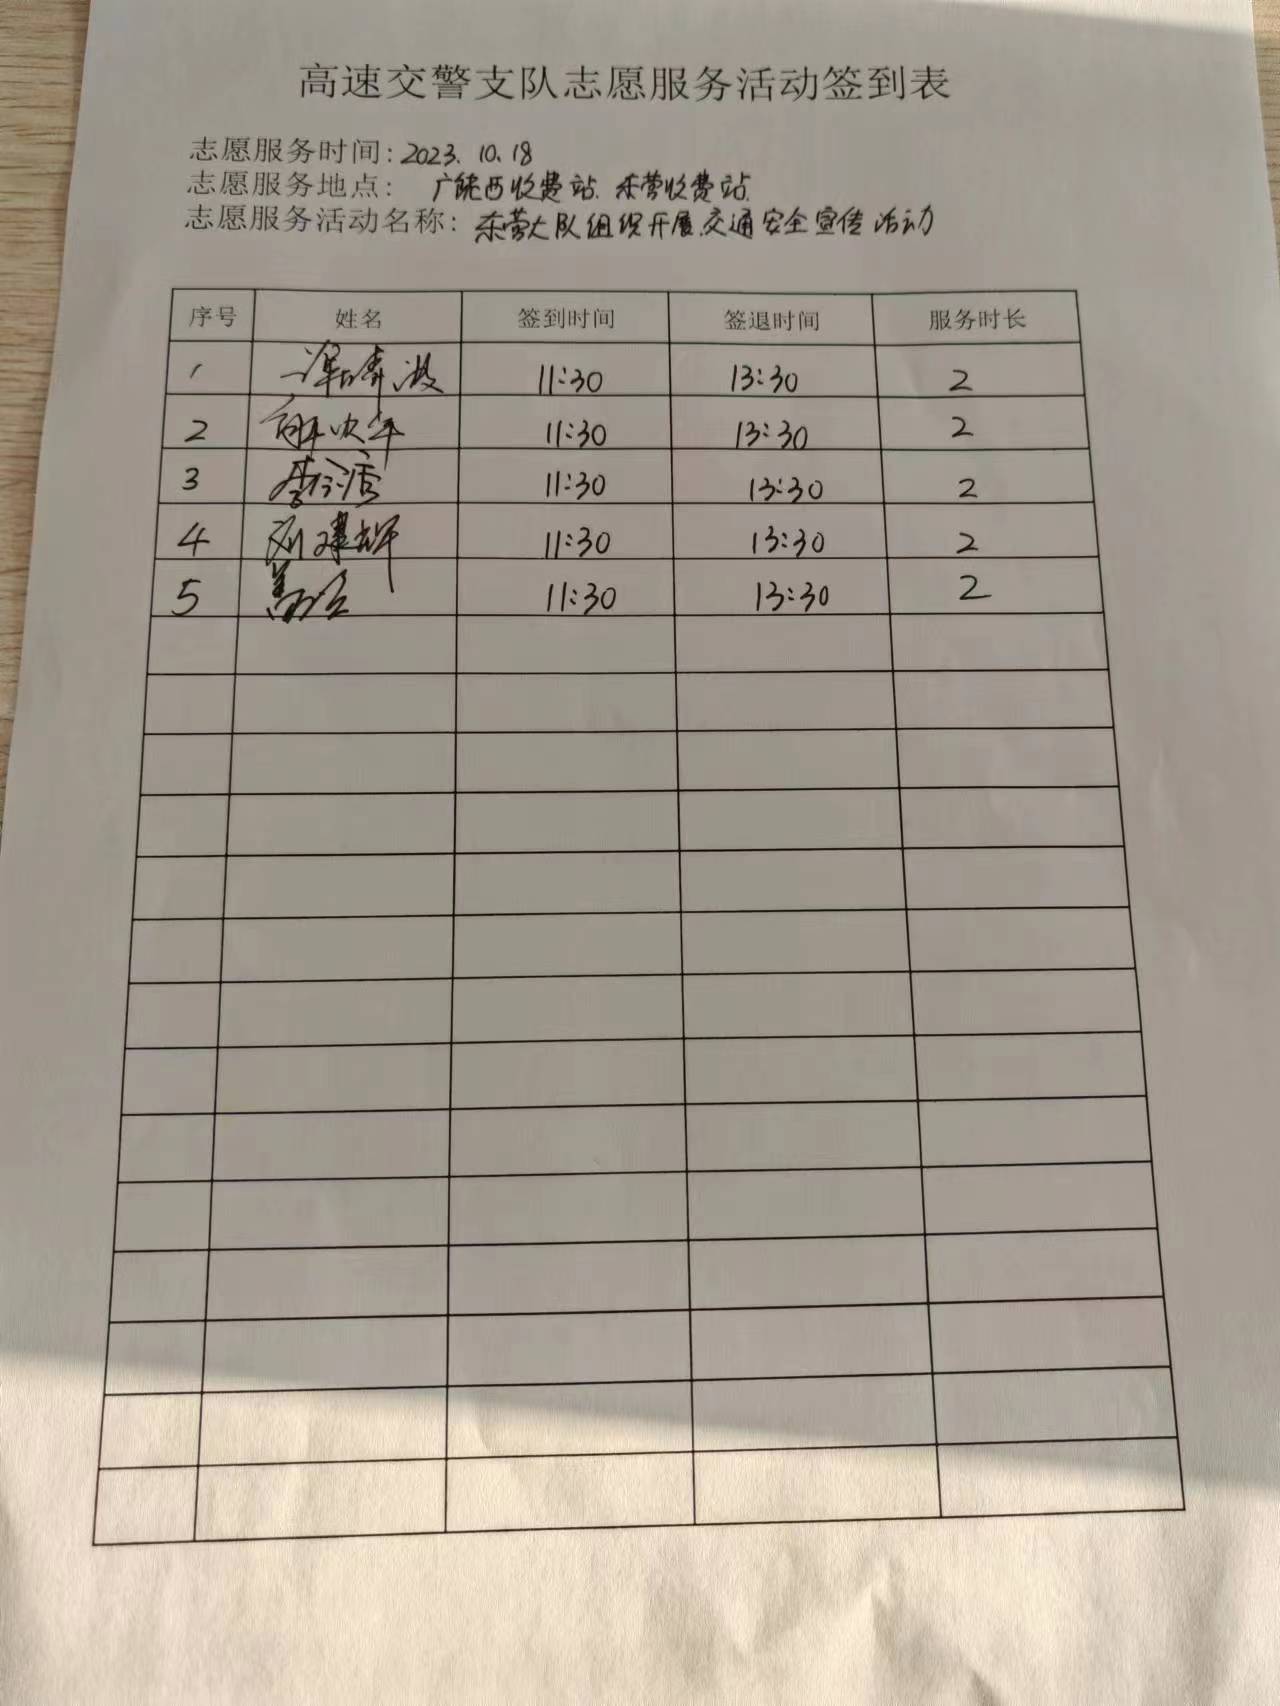 高速交警支队志愿服务活动签到表
志愿服务时间：2023.10.18
志愿服务地点：广饶西收费站.东营收费站.
志愿服务活动名称：东营大队组织开展交通安全宣传活动
序号 姓名 签到时间 签退时间 服务时长
1 11:30 13:30 2
2 11:30 13:30 2
3 11:30 13:30 2
4 刘建辉 11:30 13:30 2
5 11:30 13:30 2